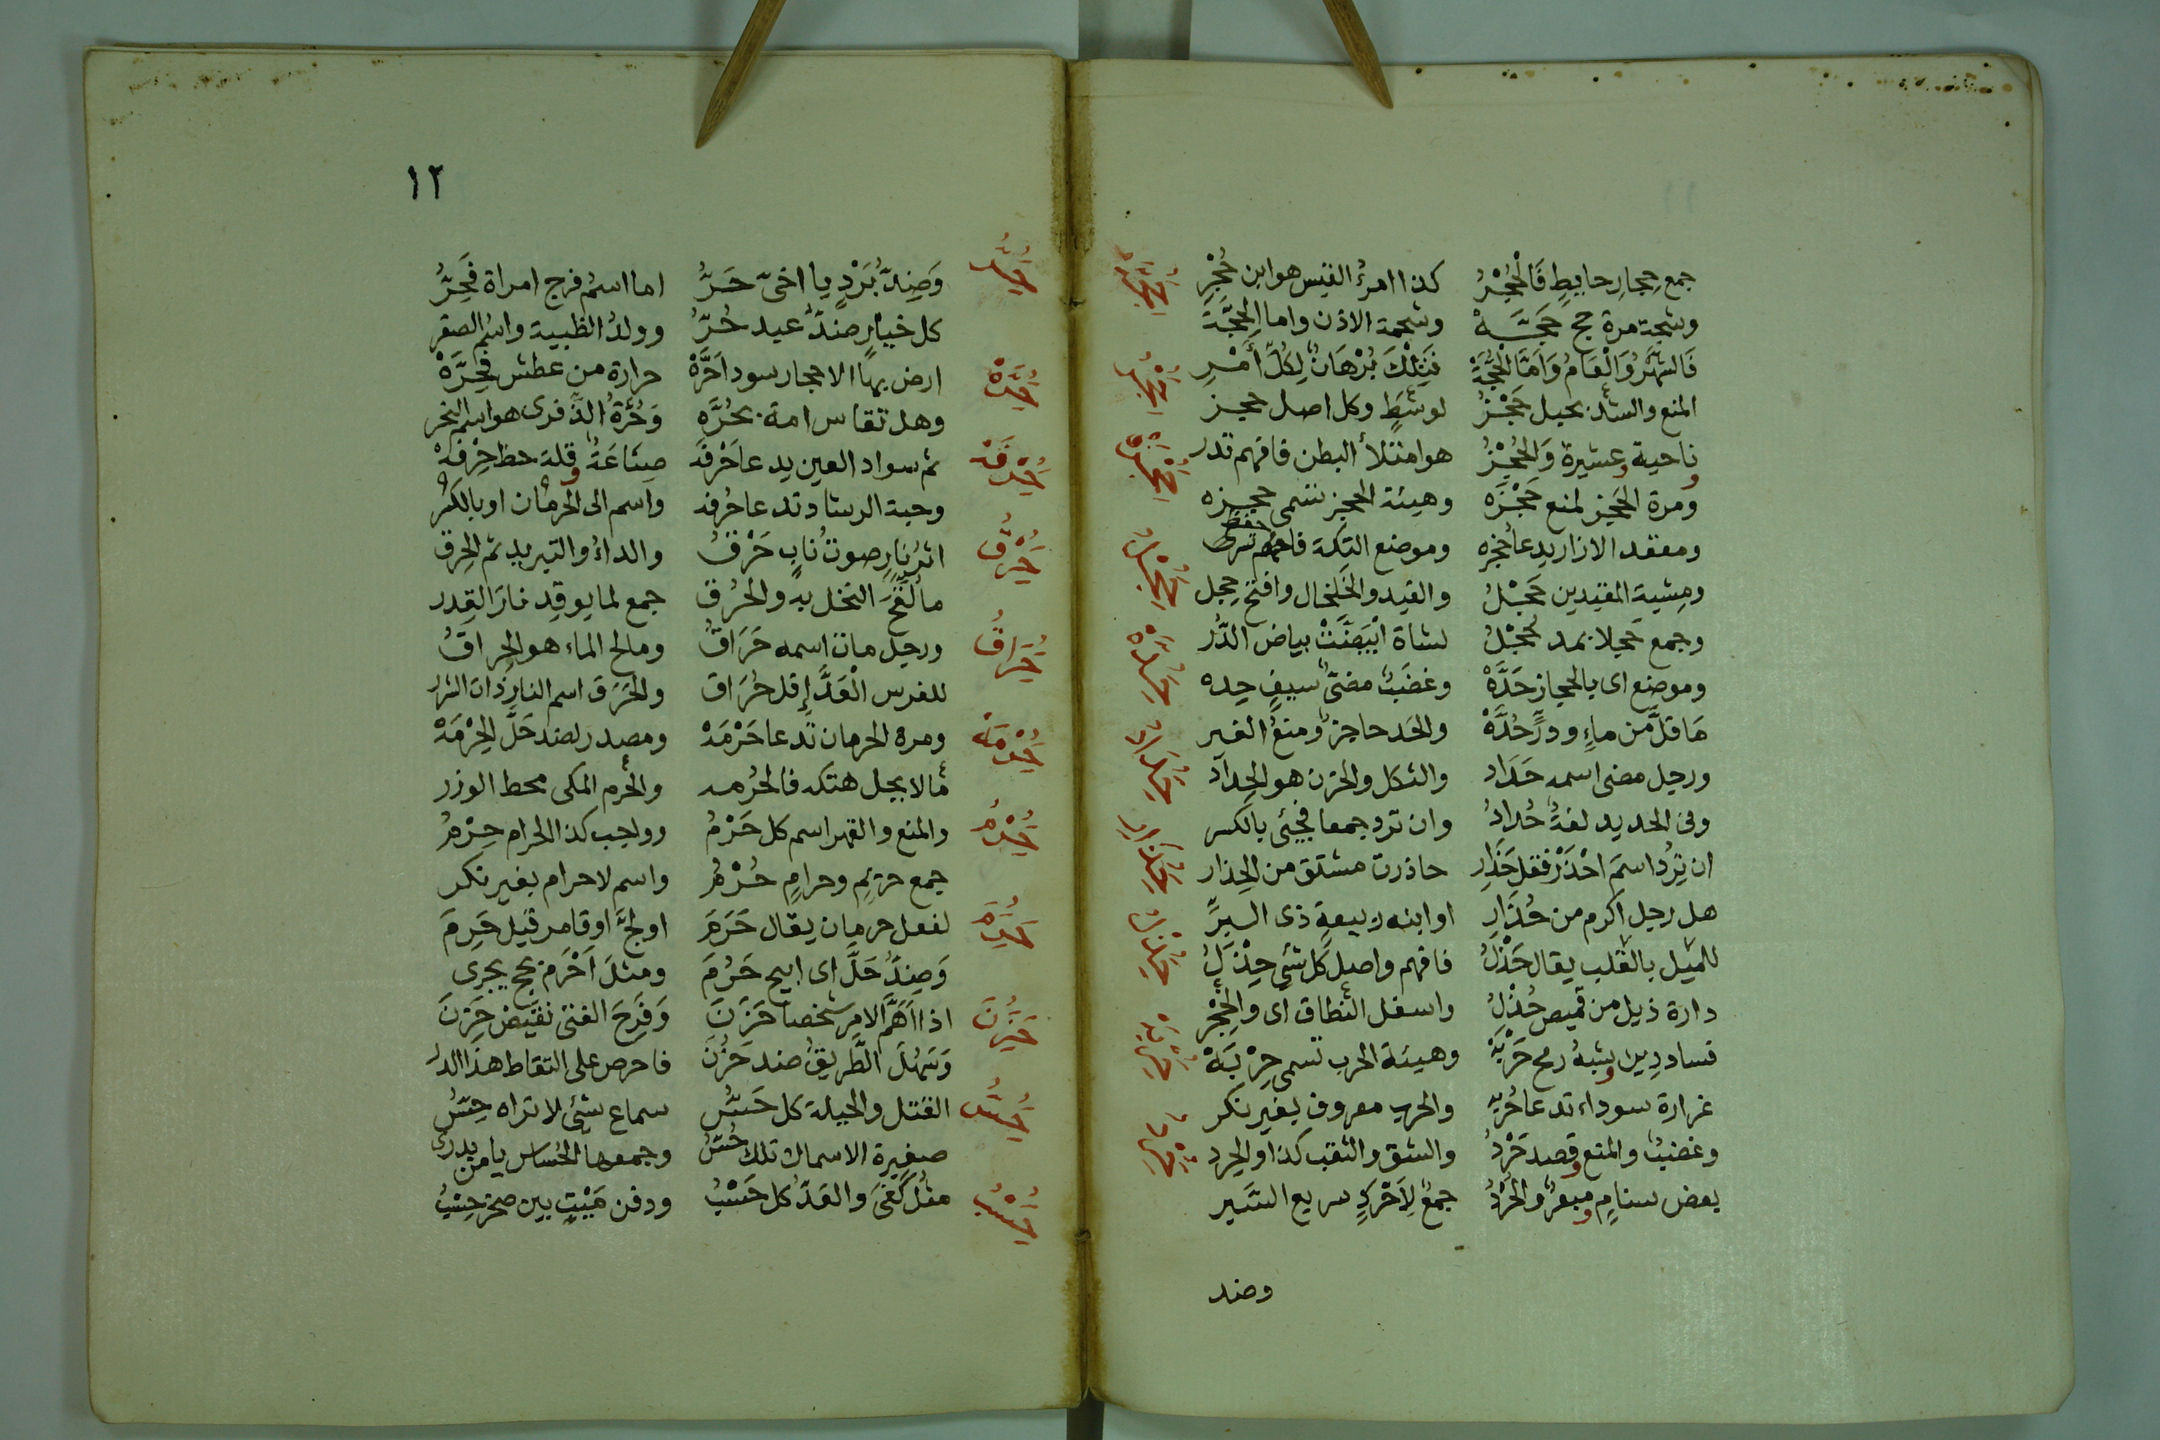 جمع حِجارِ حايطٍ فَالْحُجْرُ كذا امرؤُ القيس هو ابن حُجْرِ
وشجة مرة حج حَجَّةْ وشحمة الاذن واما الحِجَّةَ
فَالشَّهرُ وَالْعَامُ وَاَمَّا الْحُجَّةْ فَتِلْكَ بُرْهَانٌ لِكُلِّ أَمْرِ
المنع والشد بحبل حَجْزُ لوسَطٍ وكل اصل حجز
ناحية وعشيرة وَالحُجْزُ هو امتلأ البطن فافهم تدر
ومرة الحَجز لمنع حَجْزَه وهيئة الحجز تسمى حجزه
ومعقد الازار يدعا حُجزه وموضع التِكة فاحفظ
ومِشية المقيدين حَجْلُ والقيد والخَلخال وافتح حِجل
وجمع حَجلا بمد حُجْلُ لشاة ابْيَضَّتْ بياض الدُّر
وموضع اى بالحجاز حَدَّةْ وغضَبٌ مضىُّ سيفٍ حِده
مَا قلَّ من ماءٍ ودرٍّ حُدَّةْ والحَد حاجز ومنعُ الغير
ورجل مضى اسمه حَدَاد والثكل والحزن هو الحِدآد
وفى الحديد لغةٌ حُدادُ وان ترد جمعا فجئ بالكسر
ان تِرُد اسمَ احْذَرْ فقل حَذَارِ حاذرت مشتق من الحِذار
هل رجل اكرم من حُذَارِ او ابنه ربيعةِ ذى السِيرِّ
للمَيل بالقلب يقال حَذْلُ فافهم واصل كل شئ حِذْلُ
دارة ذيل من قميص حُذْلُ واسفل النطاق اى والحِجْرِ
فساد دِين وشبهُ رمح حَرْبَةْ وهيئة الحرب تسمى حِرْبَةْ
غرارة سوداء تدعا حُربه والحرب معروف بغير نكر
وغضبٌ والمنع وقصد حَرْدُ والشق والثقب كذا والحِرد
بعض سنامٍ ومبعرٌ والحُرْدُ جمعٌ لِاَحْرَدٍ سريع السَّير
وضد
حُجَّةْ
حُجْزُ
حُجْزَه
حُجْلُ
حُدَّةْ
حُدَادُ
حُذَارِ
حُذْلُ
حُرْبَه
حُرْدُ
١٢
وَضِدُّ بَرْدٍ يا اخىّ حَرُّ اما اسمُ فرج امراة فَحِرُّ
كل خيار ضدُّ عبد حُرُّ وولدُ الظبية واسُم الصقر
ارض بها الاحجار سود احَرَّةْ حرارة من عطش فَحِرَّةْ
وهل تقاس امة بحُرَّه وَحُرَّةُ الذِّفرى هو اسم النحر
ثم سواد العين يدعا حَرْفَة صِنَاعَةٌ وقلة حظ حِرْفَةْ
وحبة الرشاد تدعا حُرفه واسم الى الحرمان او بالكسْر
اثرُ نارٍ صوتُ نابٍ حَرْقُ والداءُ والتبريد ثم الحِرق
ما لُقِّحَ النخل به والحُرُق جمع لما يوقِد نارَ القِدر
ورجل مات اسمه حَرَاقُ ومالح الماء هو الحِراقُ
للفرس الْعَدَّإ قل حُرَاق والحَرَق اسم النار ذات الشرر
ومرة الحرمان تدعا حَرْمَةْ ومصدر لضد حَلَّ الحِرْمَةْ
ما لا يحل هتكه فالحُرمه والحُرم المكى محط الوزر
والمنع والقهر اسم كل حَرْمُ وواجب كذا الحرام حِرْمُ
جمع حريم وحرامٍ حُرْمُ واسم لاحرام بغير نكر
لفعل حرمان يقال حَرَمَ او لجَّ او قامر قيل حَرِمَ
وَضِدُّ حَلَّ اى ابيح حَرُمَ ومثلَ اَحْرَم بحج يجرى
اذا اَهَمَّ الامر شخصا حَزَنَ وَفَرِحَ الفتى نقيض حَزِنَ
وَسَهُلَ الطَّريقُ ضد حَزُنَ فاحرص على التقاط هذا الدر
القتل والحيلة كل حَسُّ سماع شئ لا تراه حِسُّ
صغيرة الاسماك تلك حُسُّ وجمعها الحُساس يا من يدرى
مثْلُ كَفَى والعَدُّ كل حَسْبُ ودفن مَيْتٍ بين صخر حِسْبُ
حُرُّ
حُرَّةْ
حُرْفَةْ
حُرُق
حُرَاقُ
حُرْمَةْ
حُرْمُ
حَرُمَ
حَزُنَ
حُسُّ
حُسْبُ